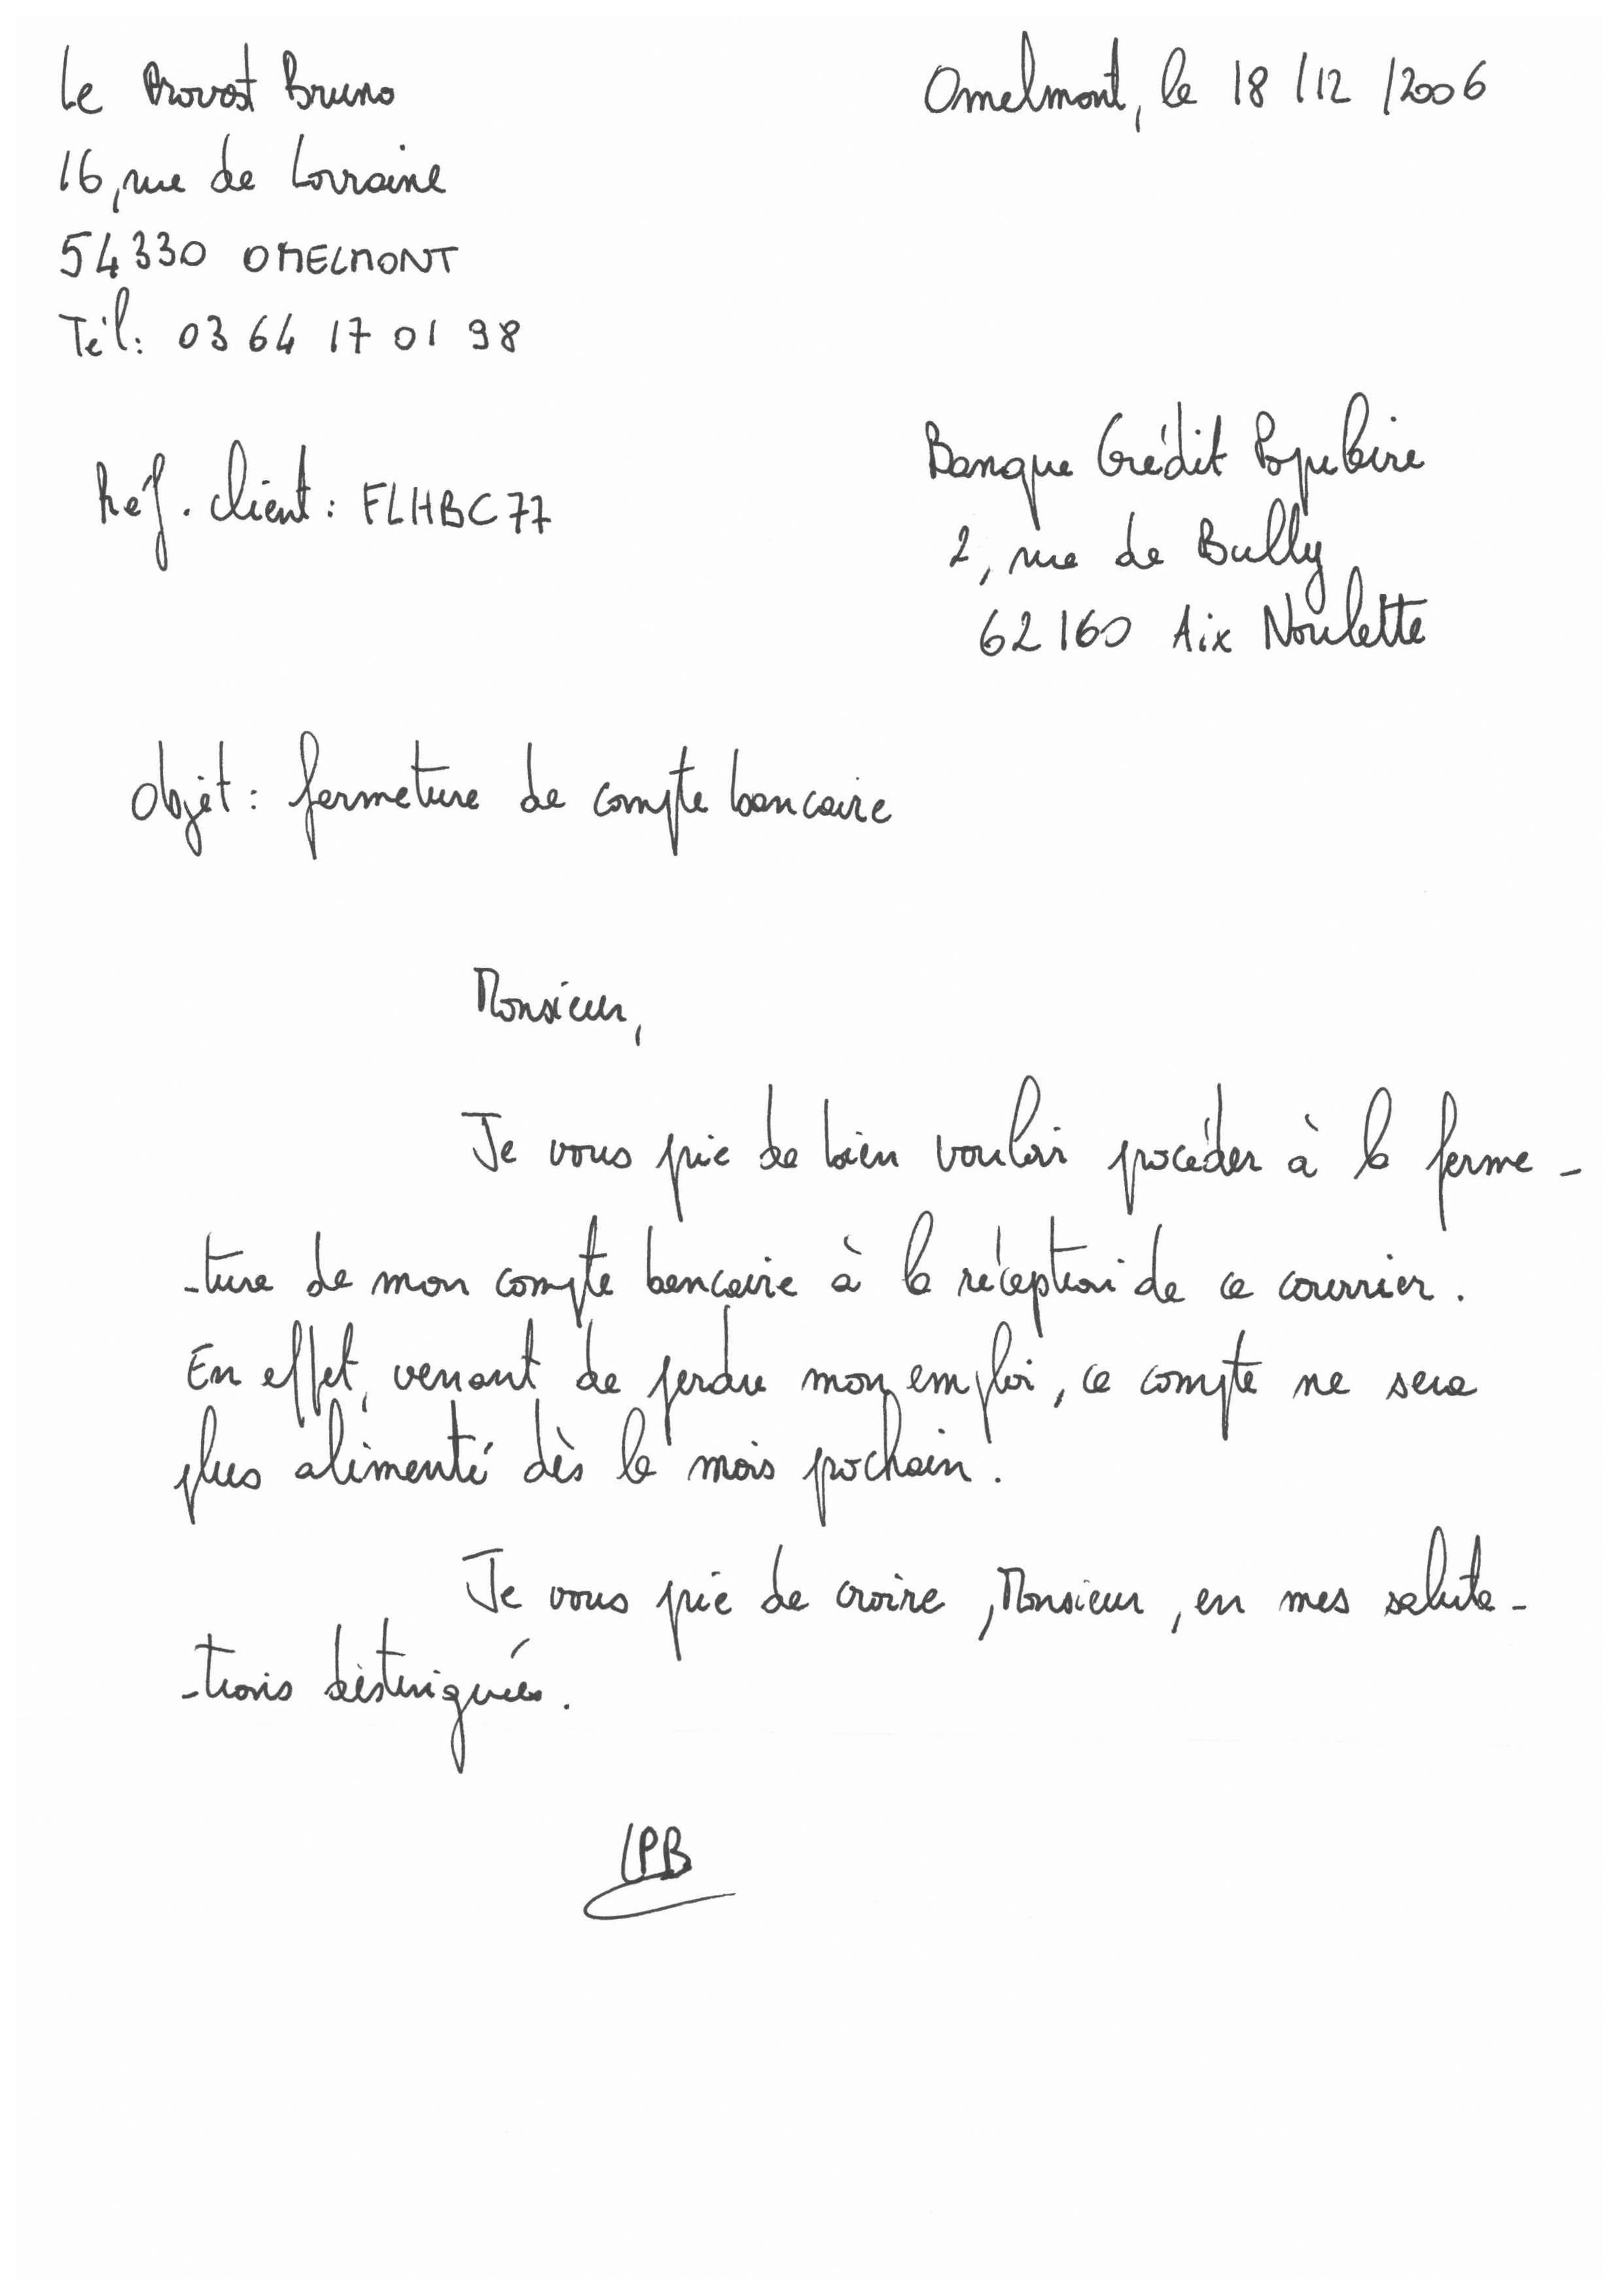 Le Provost Bruno
16, rue de Lorraine
54330 OMELMONT
Tél: 03 64 17 01 98
Omelmont, le 18/12/2006
Réf. client: FLHBC77
Banque Crédit Populaire
2, rue de Bully
62160 Aix Noulette
Objet: fermeture de compte bancaire
Monsieur,
Je vous prie de bien vouloir procéder à la ferme-
-ture de mon compte bancaire à la réception de ce courrier.
En effet, venant de perdre mon emploi, ce compte ne sera
plus alimenté dès le mois prochain.
Je vous prie de croire, Monsieur, en mes saluta-
-tions distinguées.
LPB